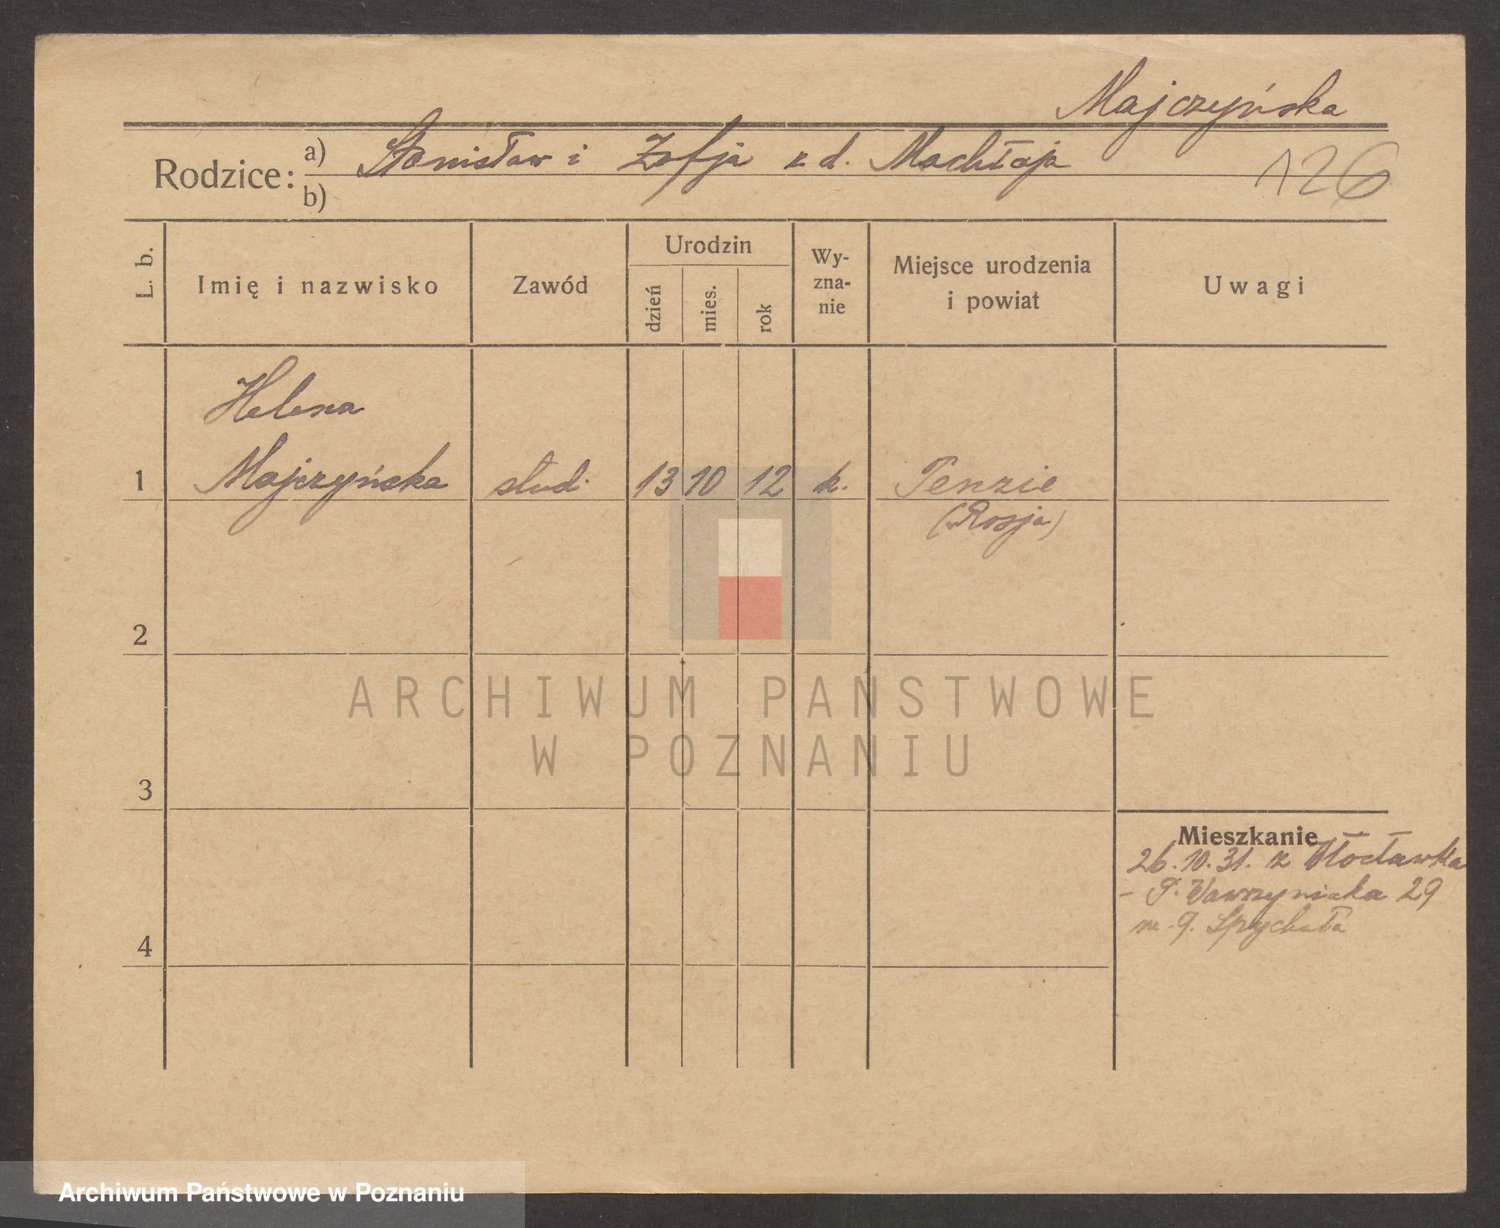 Majczyńska
Rodzice: a) Stanisław i Zofja z d. Machłaja
b)
126
L. b.
Imię i nazwisko
Zawód
Urodzin
dzień
mies.
rok
Wy-
zna-
nie
Miejsce urodzenia
i powiat
Uwagi
Helena
1 Majczyńska stud. 13 10 12 k. Penzie
(Rosja)
2
3
4
Mieszkanie
26.10.31. z Włocławka
- P. Wawrzyniaka 29
m. 9. Spychała
ARCHIWUM PAŃSTWOWE
W POZNANIU
Archiwum Państwowe w Poznaniu